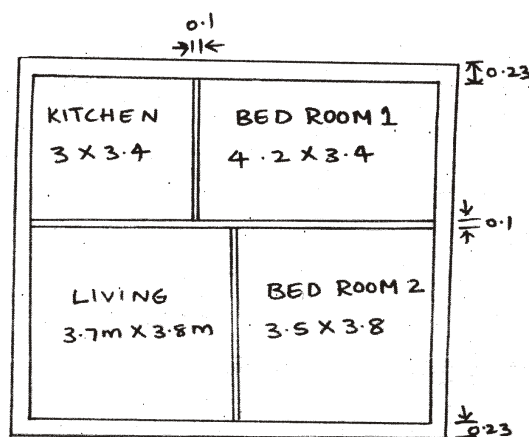 0.1
0.23
KITCHEN
3 X 3.4
BED ROOM 1
4.2 X 3.4
0.1
LIVING
3.7m X 3.8m
BED ROOM 2
3.5 X 3.8
0.23